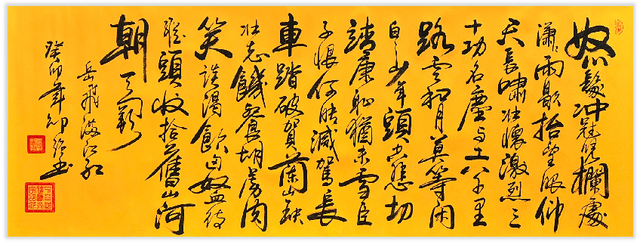 怒髮冲冠凭欄處
瀟雨歇抬望眼仰
天長嘯壯懷激烈三
十功名塵与土八千里
路雲和月莫等闲
白了少年頭空悲切
靖康恥猶未雪臣
子恨何時滅駕長
車踏破賀蘭山缺
壯志饑餐胡虜肉
笑談渴飲匈奴血待
從頭收拾舊山河
朝天闕
岳飛滿江紅
癸卯年 书